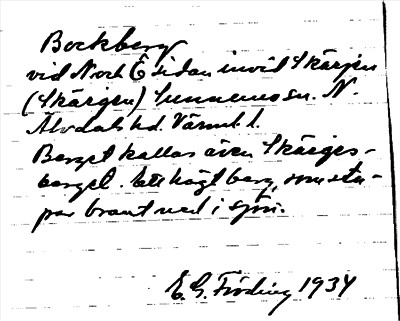 Bockberg
vid N och Ö sidan invid Skärgen
(Skärgen) Sunnemo sn. N.
Älvdals hd. Värml. l.
Berget kallas även Skärges-
berget. Ett högt berg, som stu-
par brant ned i sjön.
E. G. Fröding 1934